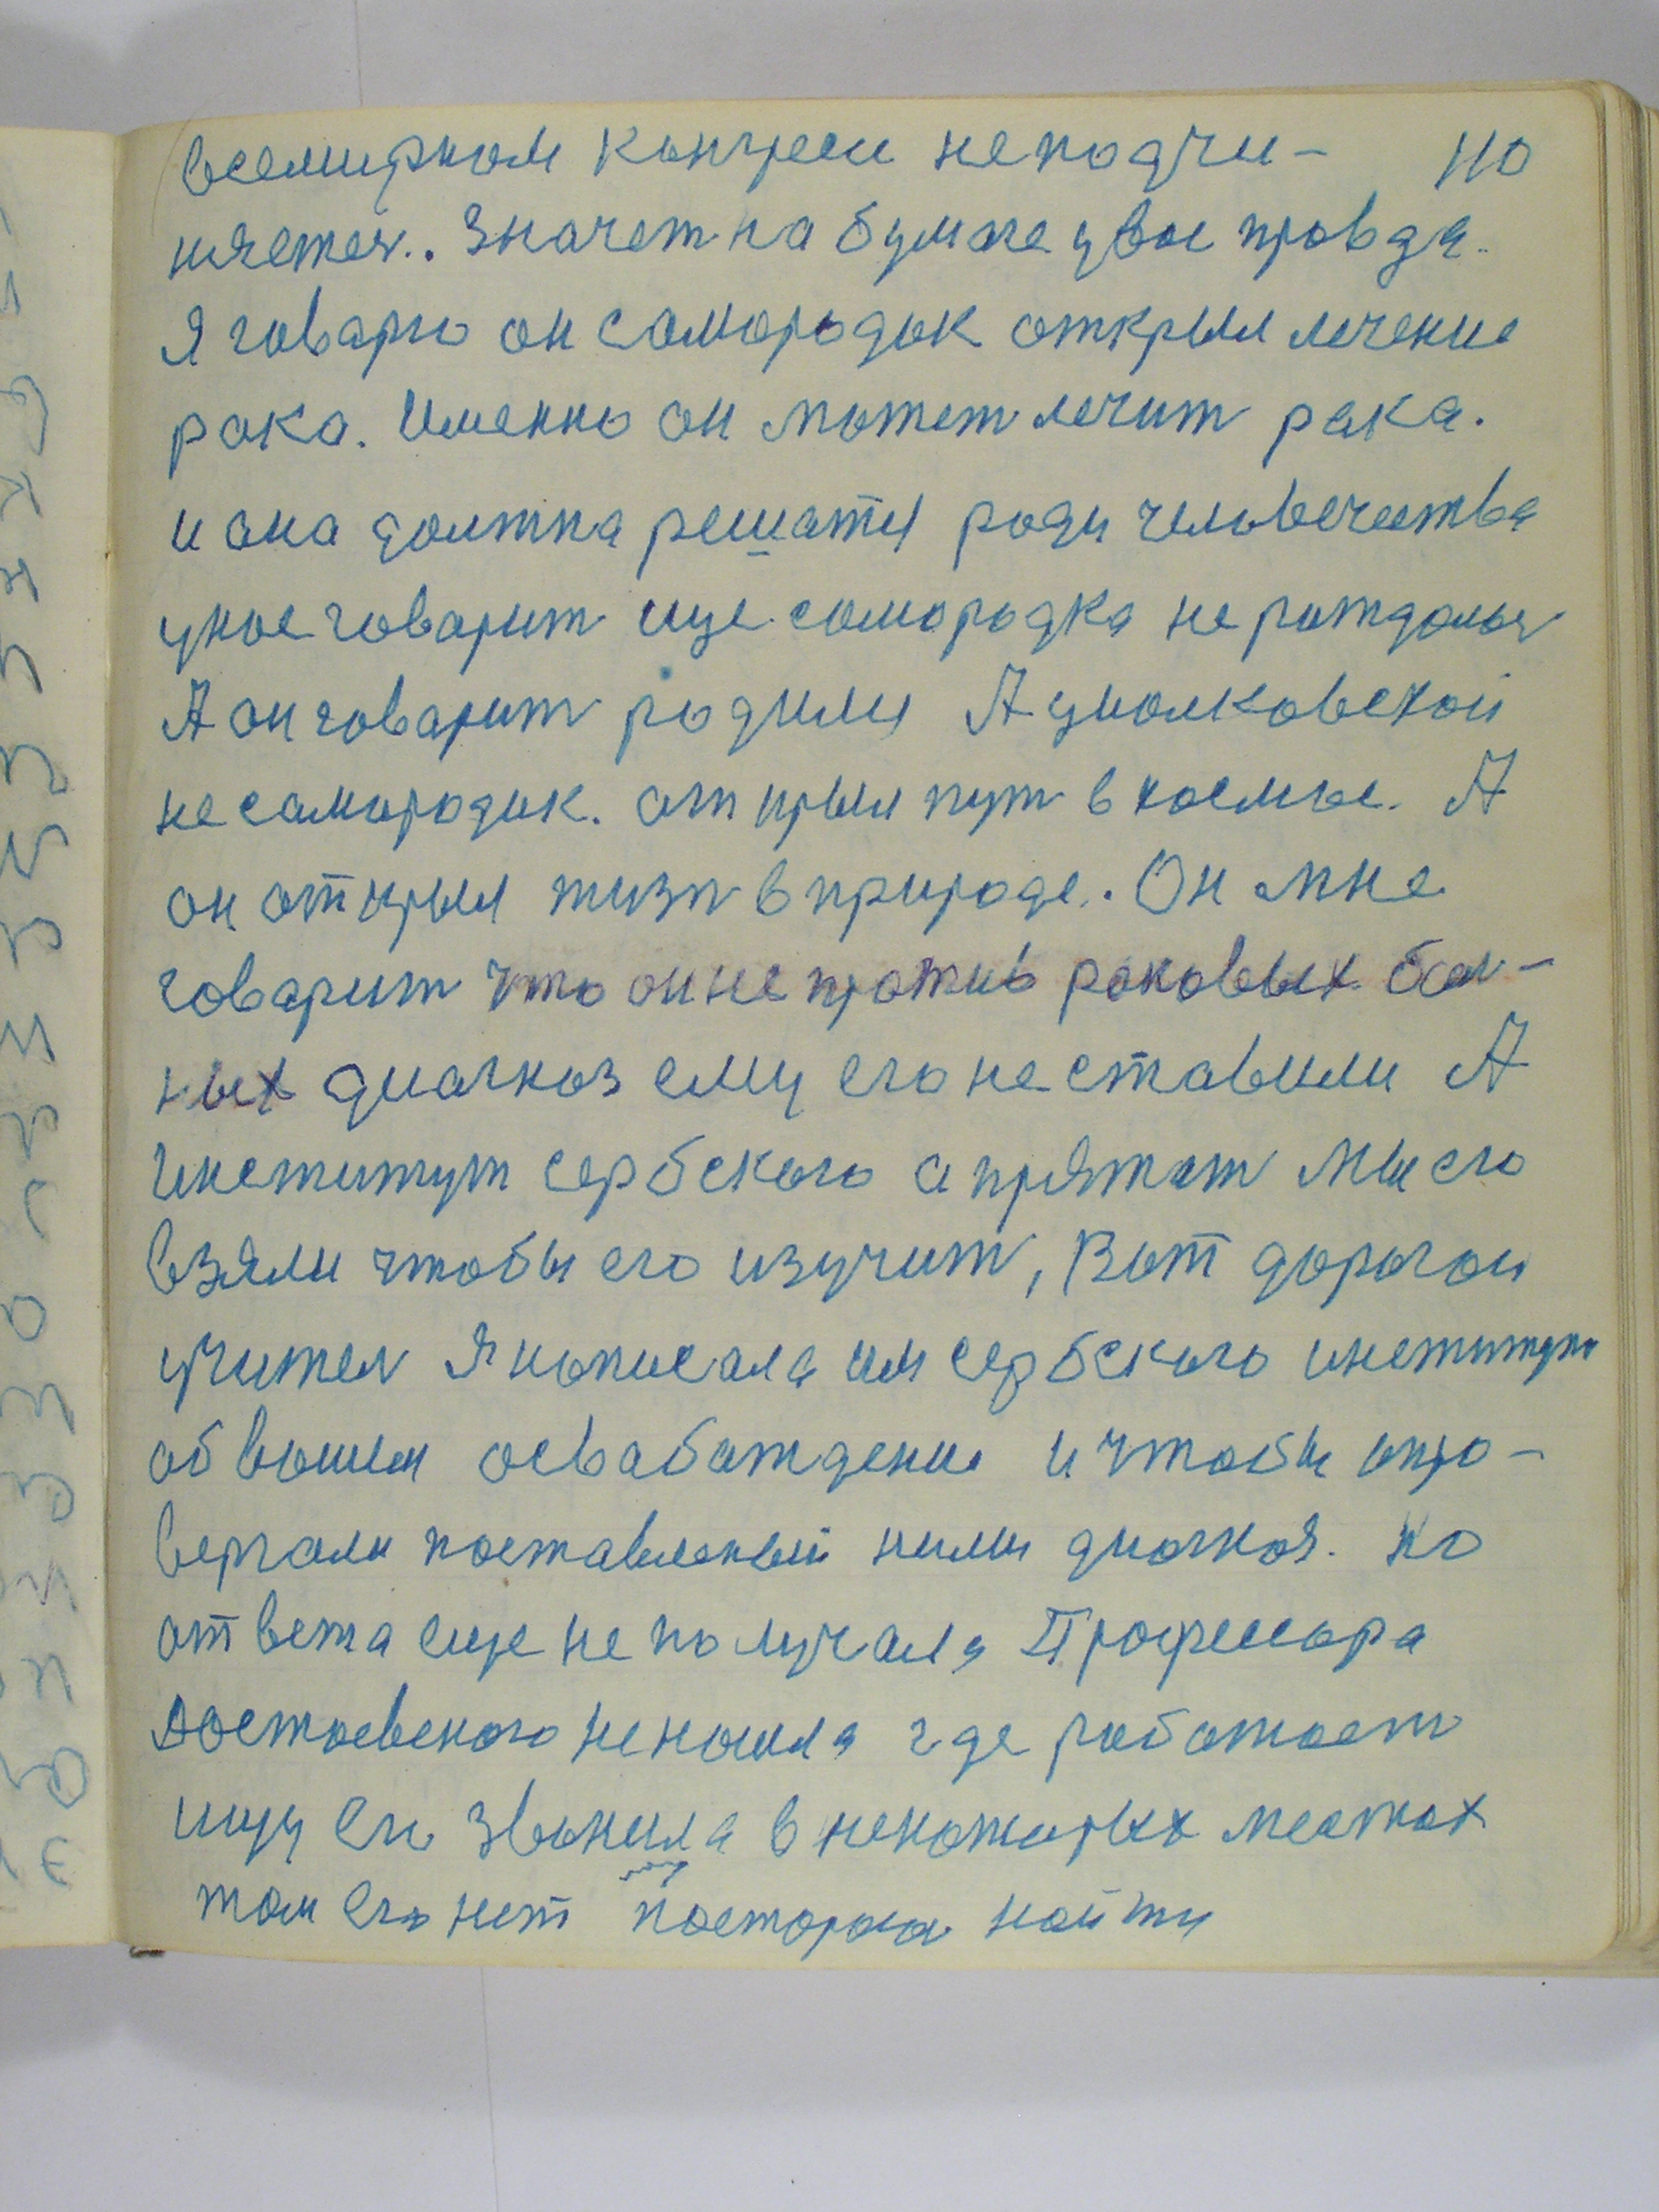 всемирном конгресси неподчи- 110
няется.. Значет на бумаге увас правда.
Я говарю он самородок открыл лечение
рака. Именно онможет лечит рака.
и она должна решатся ради человечества
умое говарит ище самородка нерождалься
А он говарит родился А циолковской
несамородик. открыл пут в космос. А
он открыл жизн в природе. Он мне
говарит что он не против раковых бол-
ных диагноз ему его не ставили А
Институт сербского апрятат Мы его
взяли чтобы его изучит, Вот дорогои
учител Я написала им сербского институт
об вашем освабаждение и чтобы опро-
вергали поставленый ними диагноз. но
ответа еще не получала Професcора
Достоевского не нашла где работает
ищу Его звонила в некоторых местах
там Его нет постораюс найти